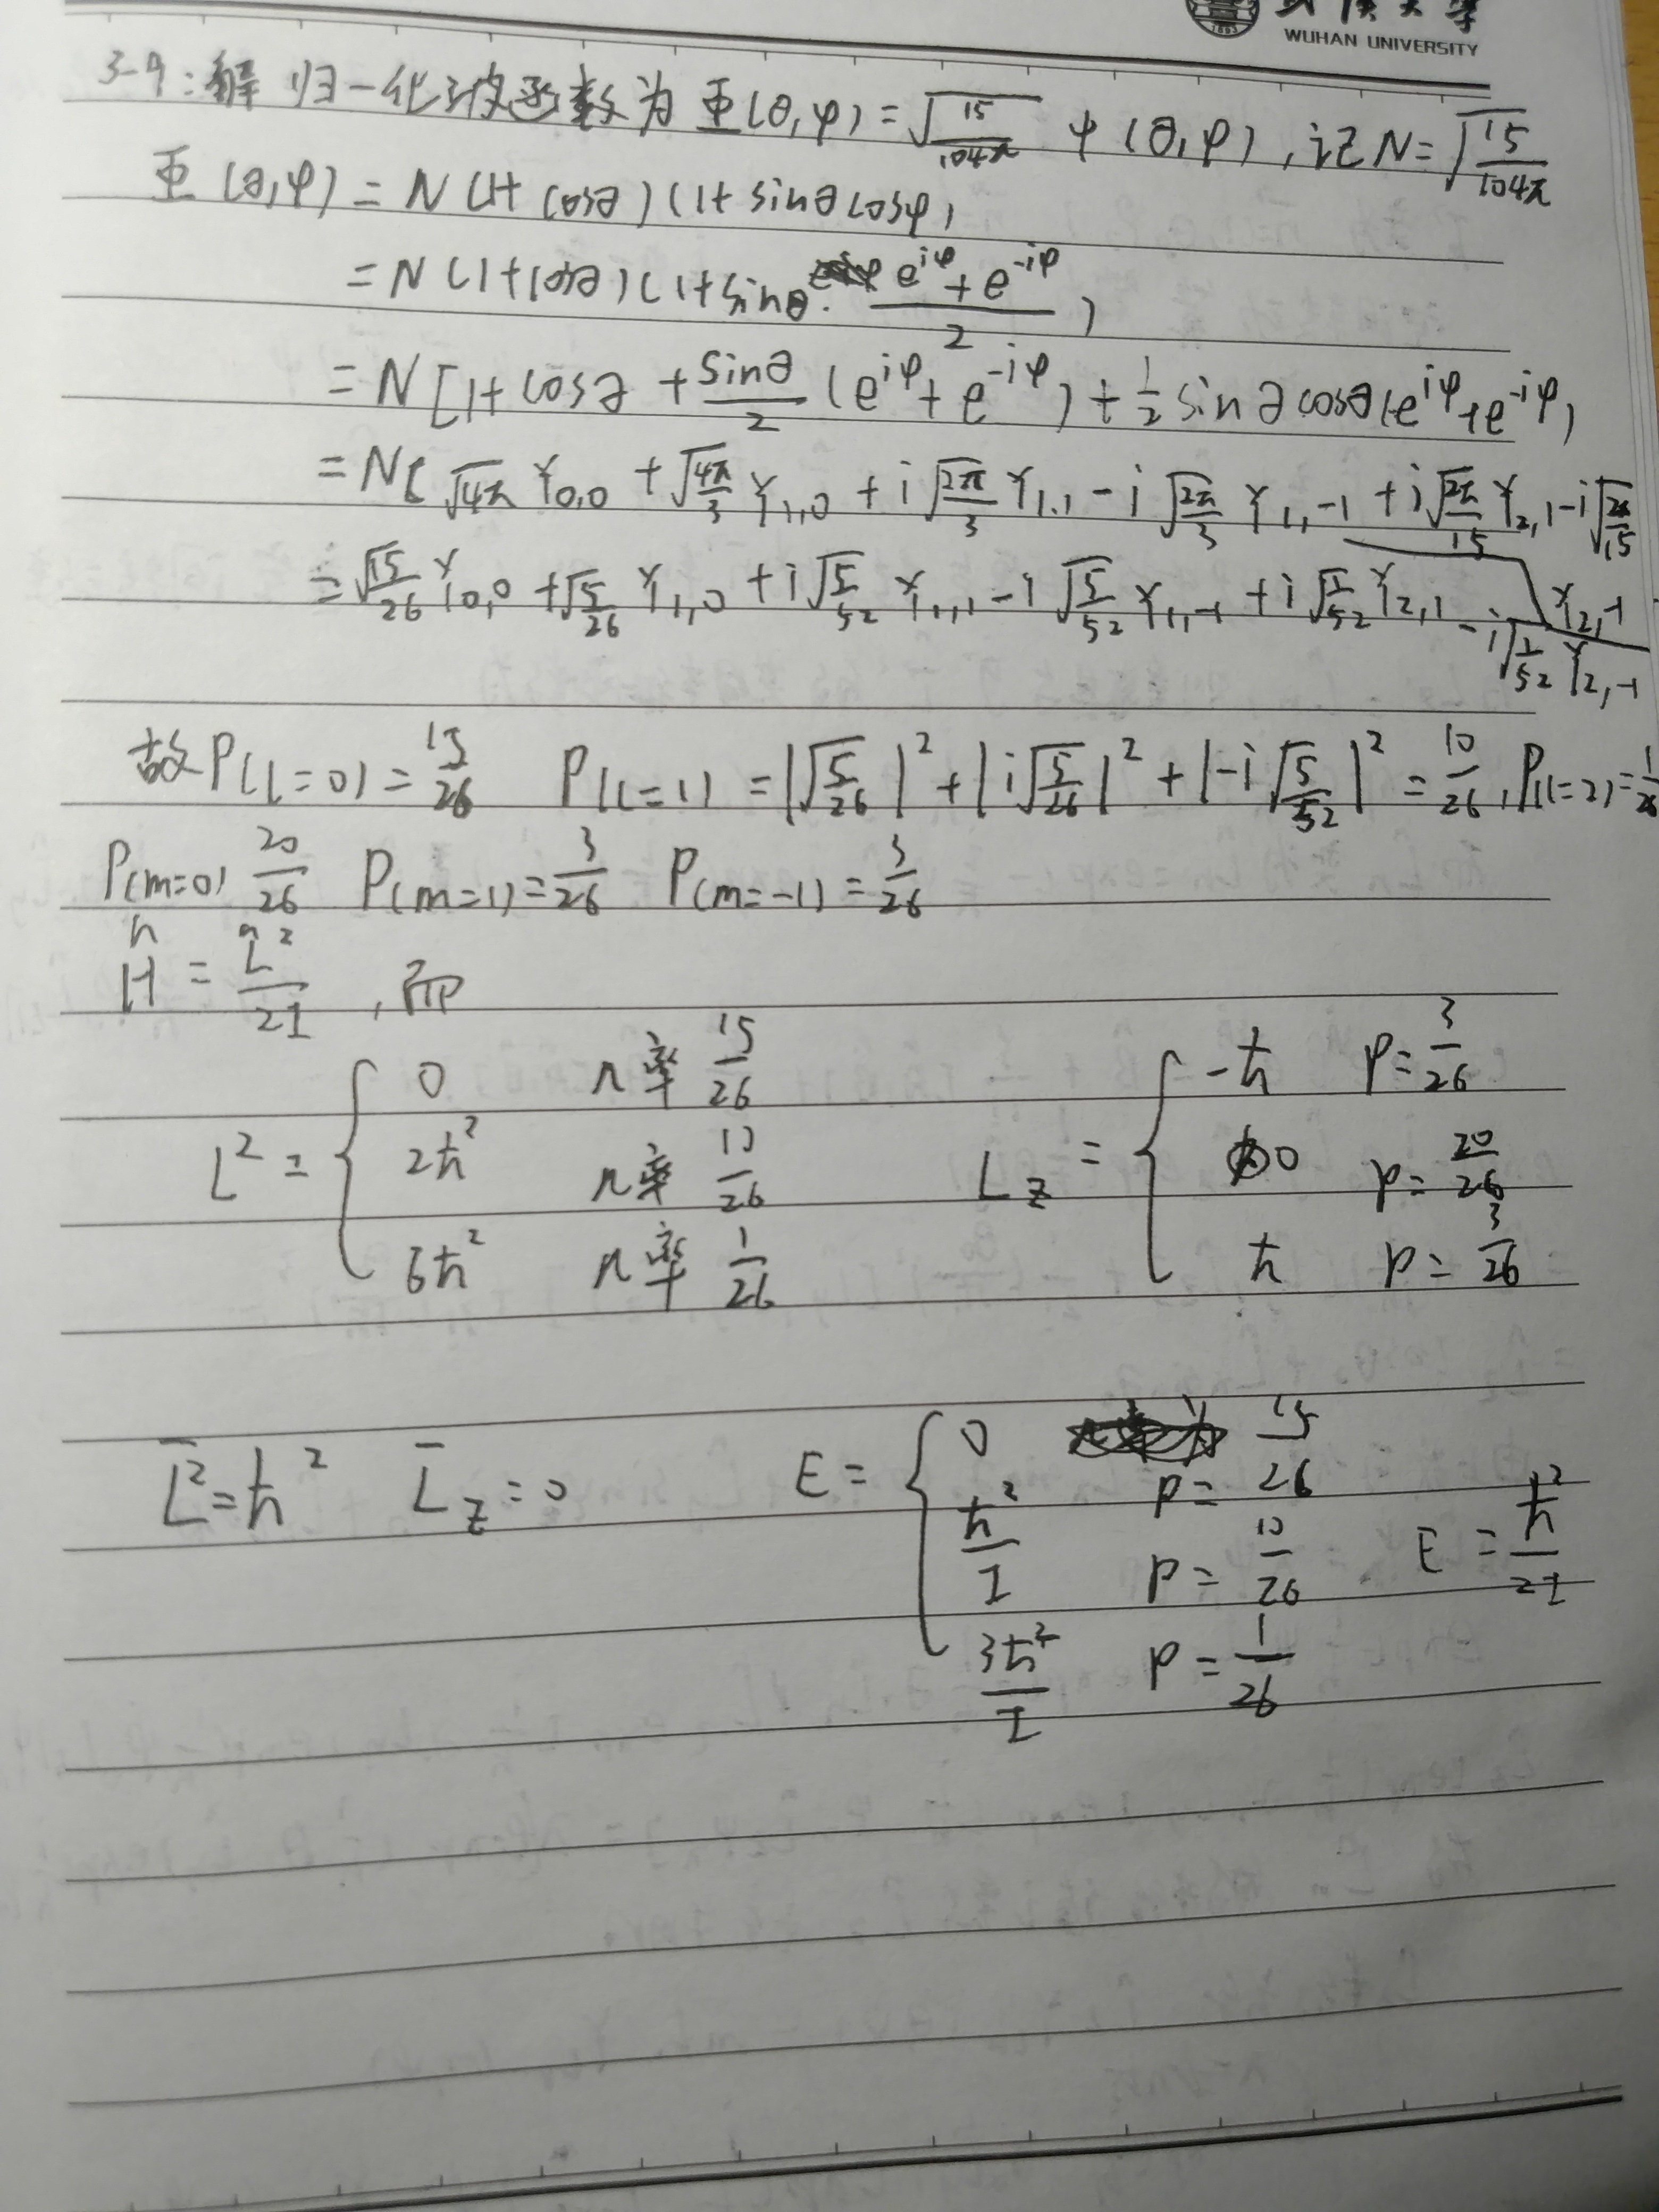 武汉大学
WUHAN UNIVERSITY
1893
3-9:解 归一化波函数为 Φ(θ,φ)=√(15/104π) ψ(θ,φ),记N=√(15/104π)
Φ(θ,φ)=N(1+cosθ)(1+sinθcosφ)
=N(1+cosθ)(1+sinθ·(e^{iφ}+e^{-iφ})/2)
=N[1+cosθ+sinθ/2(e^{iφ}+e^{-iφ})+1/2 sinθcosθ(e^{iφ}+e^{-iφ})
=N[√4π Y0,0+√(4π/3) Y1,0+i√(2π/3) Y1,1-i√(2π/3) Y1,-1+i√(2π/15) Y2,1-i√(2π/15) Y2,-1
=√(15/26) Y0,0+√(5/26) Y1,0+i√(5/52) Y1,1-i√(5/52) Y1,-1+i√(1/52) Y2,1-i√(1/52) Y2,-1
故P(l=0)=15/26 P(l=1)=|√(5/26)|²+|i√(5/26)|²+|-i√(5/52)|²=10/26,P(l=2)=1/26
P(m=0) 20/26 P(m=1)=3/26 P(m=-1)=3/26
Ĥ=L̂²/2I,即
L²={0 几率 15/26
2ħ² 几率 10/26
6ħ² 几率 1/26
Lz={-ħ p=3/26
0 p=20/26
ħ p=3/26
L̄²=ħ² L̄z=0
E={0 p=15/26
ħ²/I p=10/26
3ħ²/I p=1/26
E=ħ²/2I